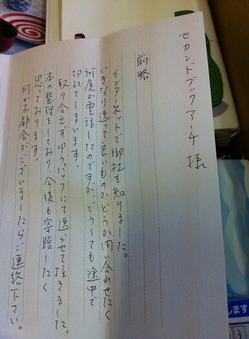 セカンドブックアーチ 様
前略
インターネットで御社を知りました。
いきなり送って良いものかどうか問い合わせたく
何度か電話したのですが、どうしても途中で
切れてしまいます。
取り合えずゆうパックにて送らせて頂きました。
本の整理をしており今後も寄贈したく
思っております。
何か不都合でございましたらご連絡下さい。
します